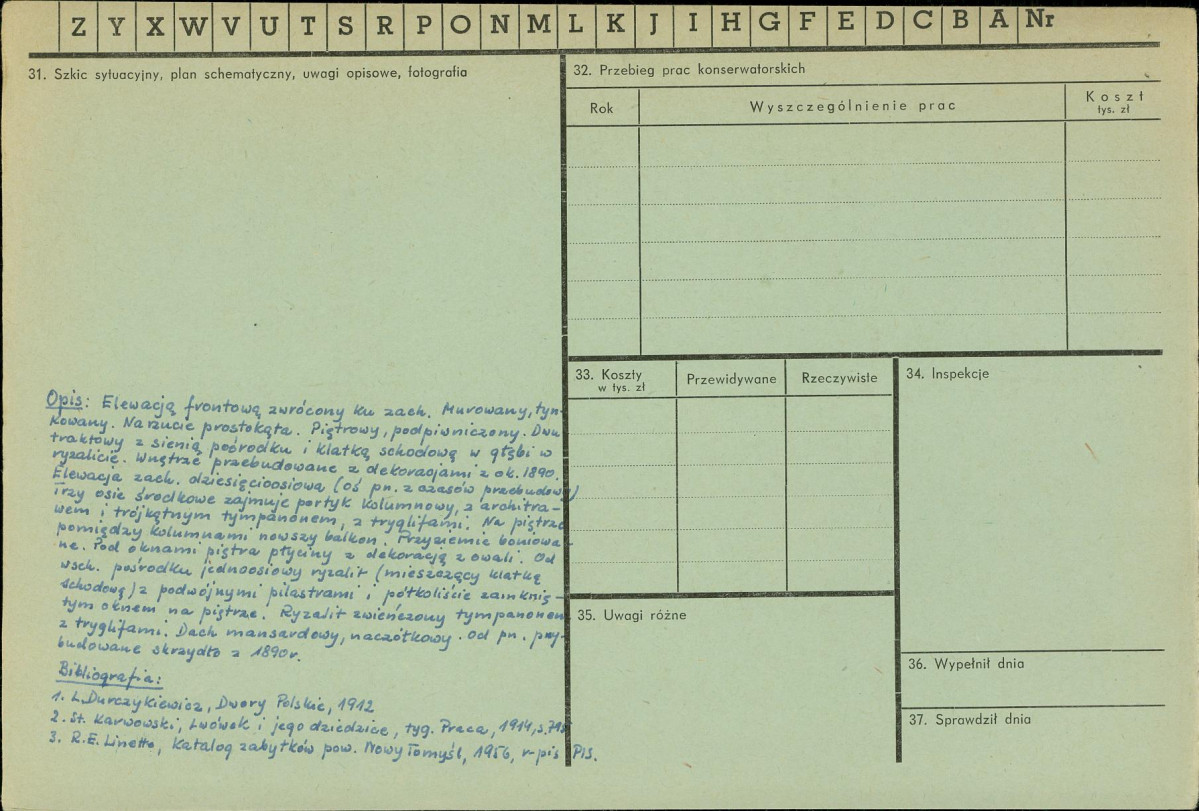 Z Y X W V U T S R P O N M L K J I H G F E D C B A Nr
31. Szkic sytuacyjny, plan schematyczny, uwagi opisowe, fotografia
Opis: Elewacją frontową zwrócony ku zach. Murowany, tyn-
kowany. Na rzucie prostokąta. Piętrowy, podpiwniczony. Dwu
traktowy z sienią pośrodku i klatką schodową w głębi w
ryzalicie. Wnętrze przebudowane z dekoracjami z ok. 1890.
Elewacja zach. dziesięcioosiowa (oś pn. z czasów przebudowy)
Trzy osie środkowe zajmuje portyk kolumnowy, z architra-
wem i trójkątnym tympanonem, z tryglifami. Na piętrze
pomiędzy kolumnami nowszy balkon. Przyziemie boniowa-
ne. Pod oknami piętra płyciny z dekoracją z owali. Od
wsch. pośrodku jednoosiowy ryzalit (mieszczący klatkę
schodową) z podwójnymi pilastrami i półkoliście zamknię-
tym oknem na piętrze. Ryzalit zwieńczony tympanonem
z tryglifami. Dach mansardowy, naczółkowy. Od pn. przy-
budowane skrzydło z 1890r.
Bibliografia:
1. L.Durczykiewicz, Dwory Polskie, 1912
2. St. Karwowski, Lwówek i jego dziedzice, tyg. Praca, 1914, s.
3. R.E. Linette, Katalog zabytków pow. Nowy Tomyśl, 1956, r-pis PIS.
32. Przebieg prac konserwatorskich
Rok Wyszczególnienie prac Koszt
tys. zł
33. Koszty
w tys. zł
Przewidywane Rzeczywiste
34. Inspekcje
35. Uwagi różne
36. Wypełnił dnia
37. Sprawdził dnia